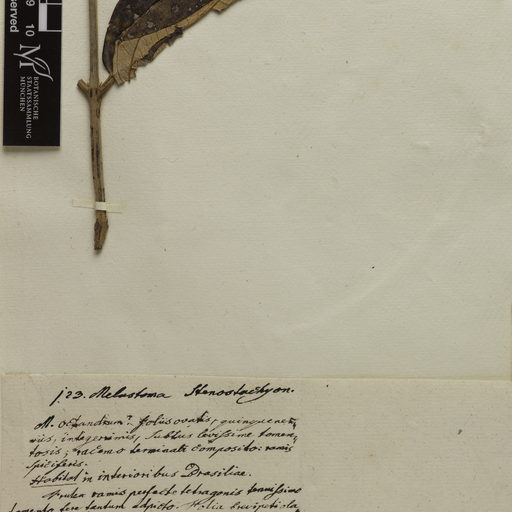 reserved
9 10
BOTANISCHE
STAATSSAMMLUNG
MÜNCHEN
123. Melastoma Stenostachyon.
M. octandrum? foliis ovatis, quinquener,,
viis, integerrimis, subtus levissime tomen,,
tosis; racemo terminali composito: ramis
spiciferis.
Habitat in interioribus Brasiliae.
Frutex ramis perfecte tetragonis tenuissimo
tomento fere tantum adspecto. Folia brevipetiola,